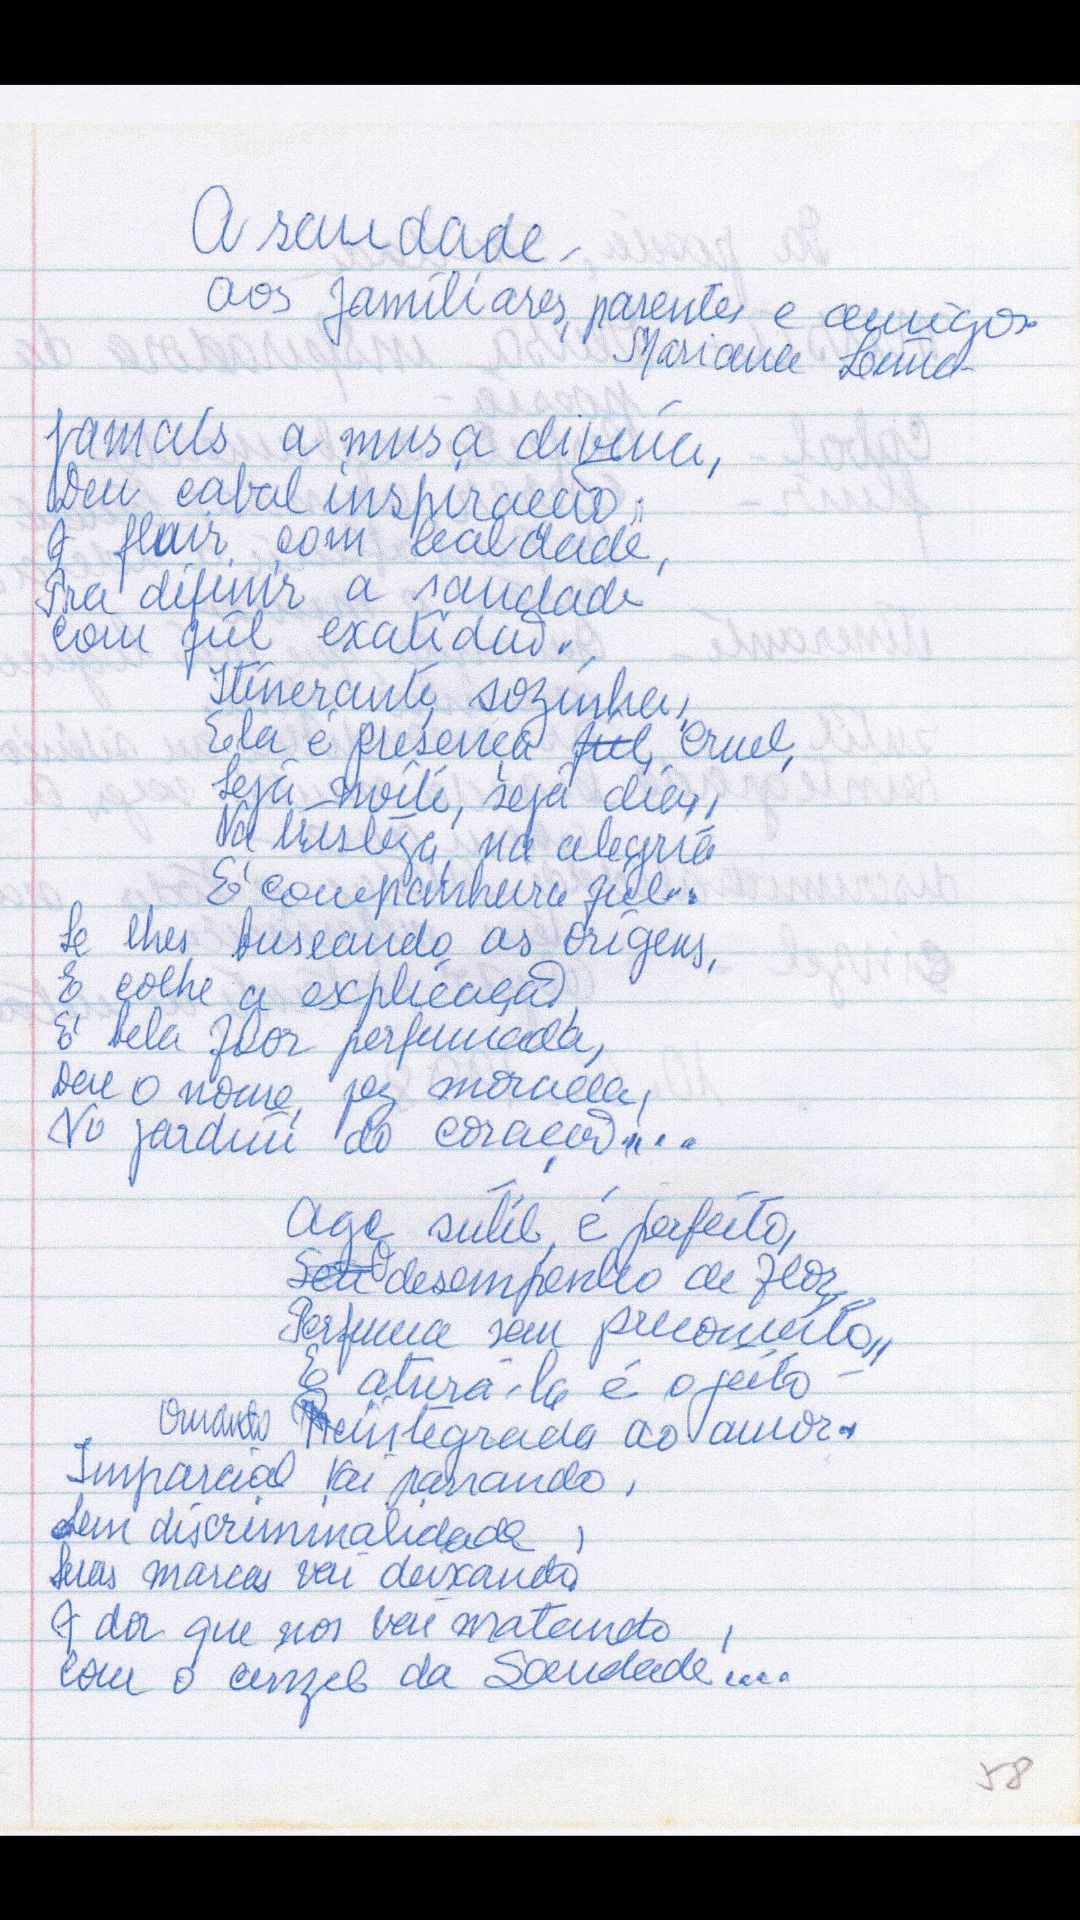 A saudade -
aos familiares, parentes e amigos
Mariana Lima
Jamais a musa divina,
Deu cabal inspiração,
A fluir com lealdade,
Pra difinir a saudade
Com fiel exatidão.
Itinerante, sozinha,
Ela é presença fiel, cruel,
Seja noite, seja dia,
Na tristeza, na alegria
É companheira fiel...
Se lhes buscando as origens,
E colhe a explicação,
É bela flor perfumada,
Deu o nome, fez morada,
No jardim do coração....
Age sutil, é perfeito,
Seu O desempenho de flor,
Perfuma sem preconceito,
E aturá-la é o jeito -
Quando Reintegrada ao amor.
Imparcial vai passando,
Sem discriminalidade,
Suas marcas vai deixando,
A dor que nos vai matando,
Com o cinzel da Saudade....
58